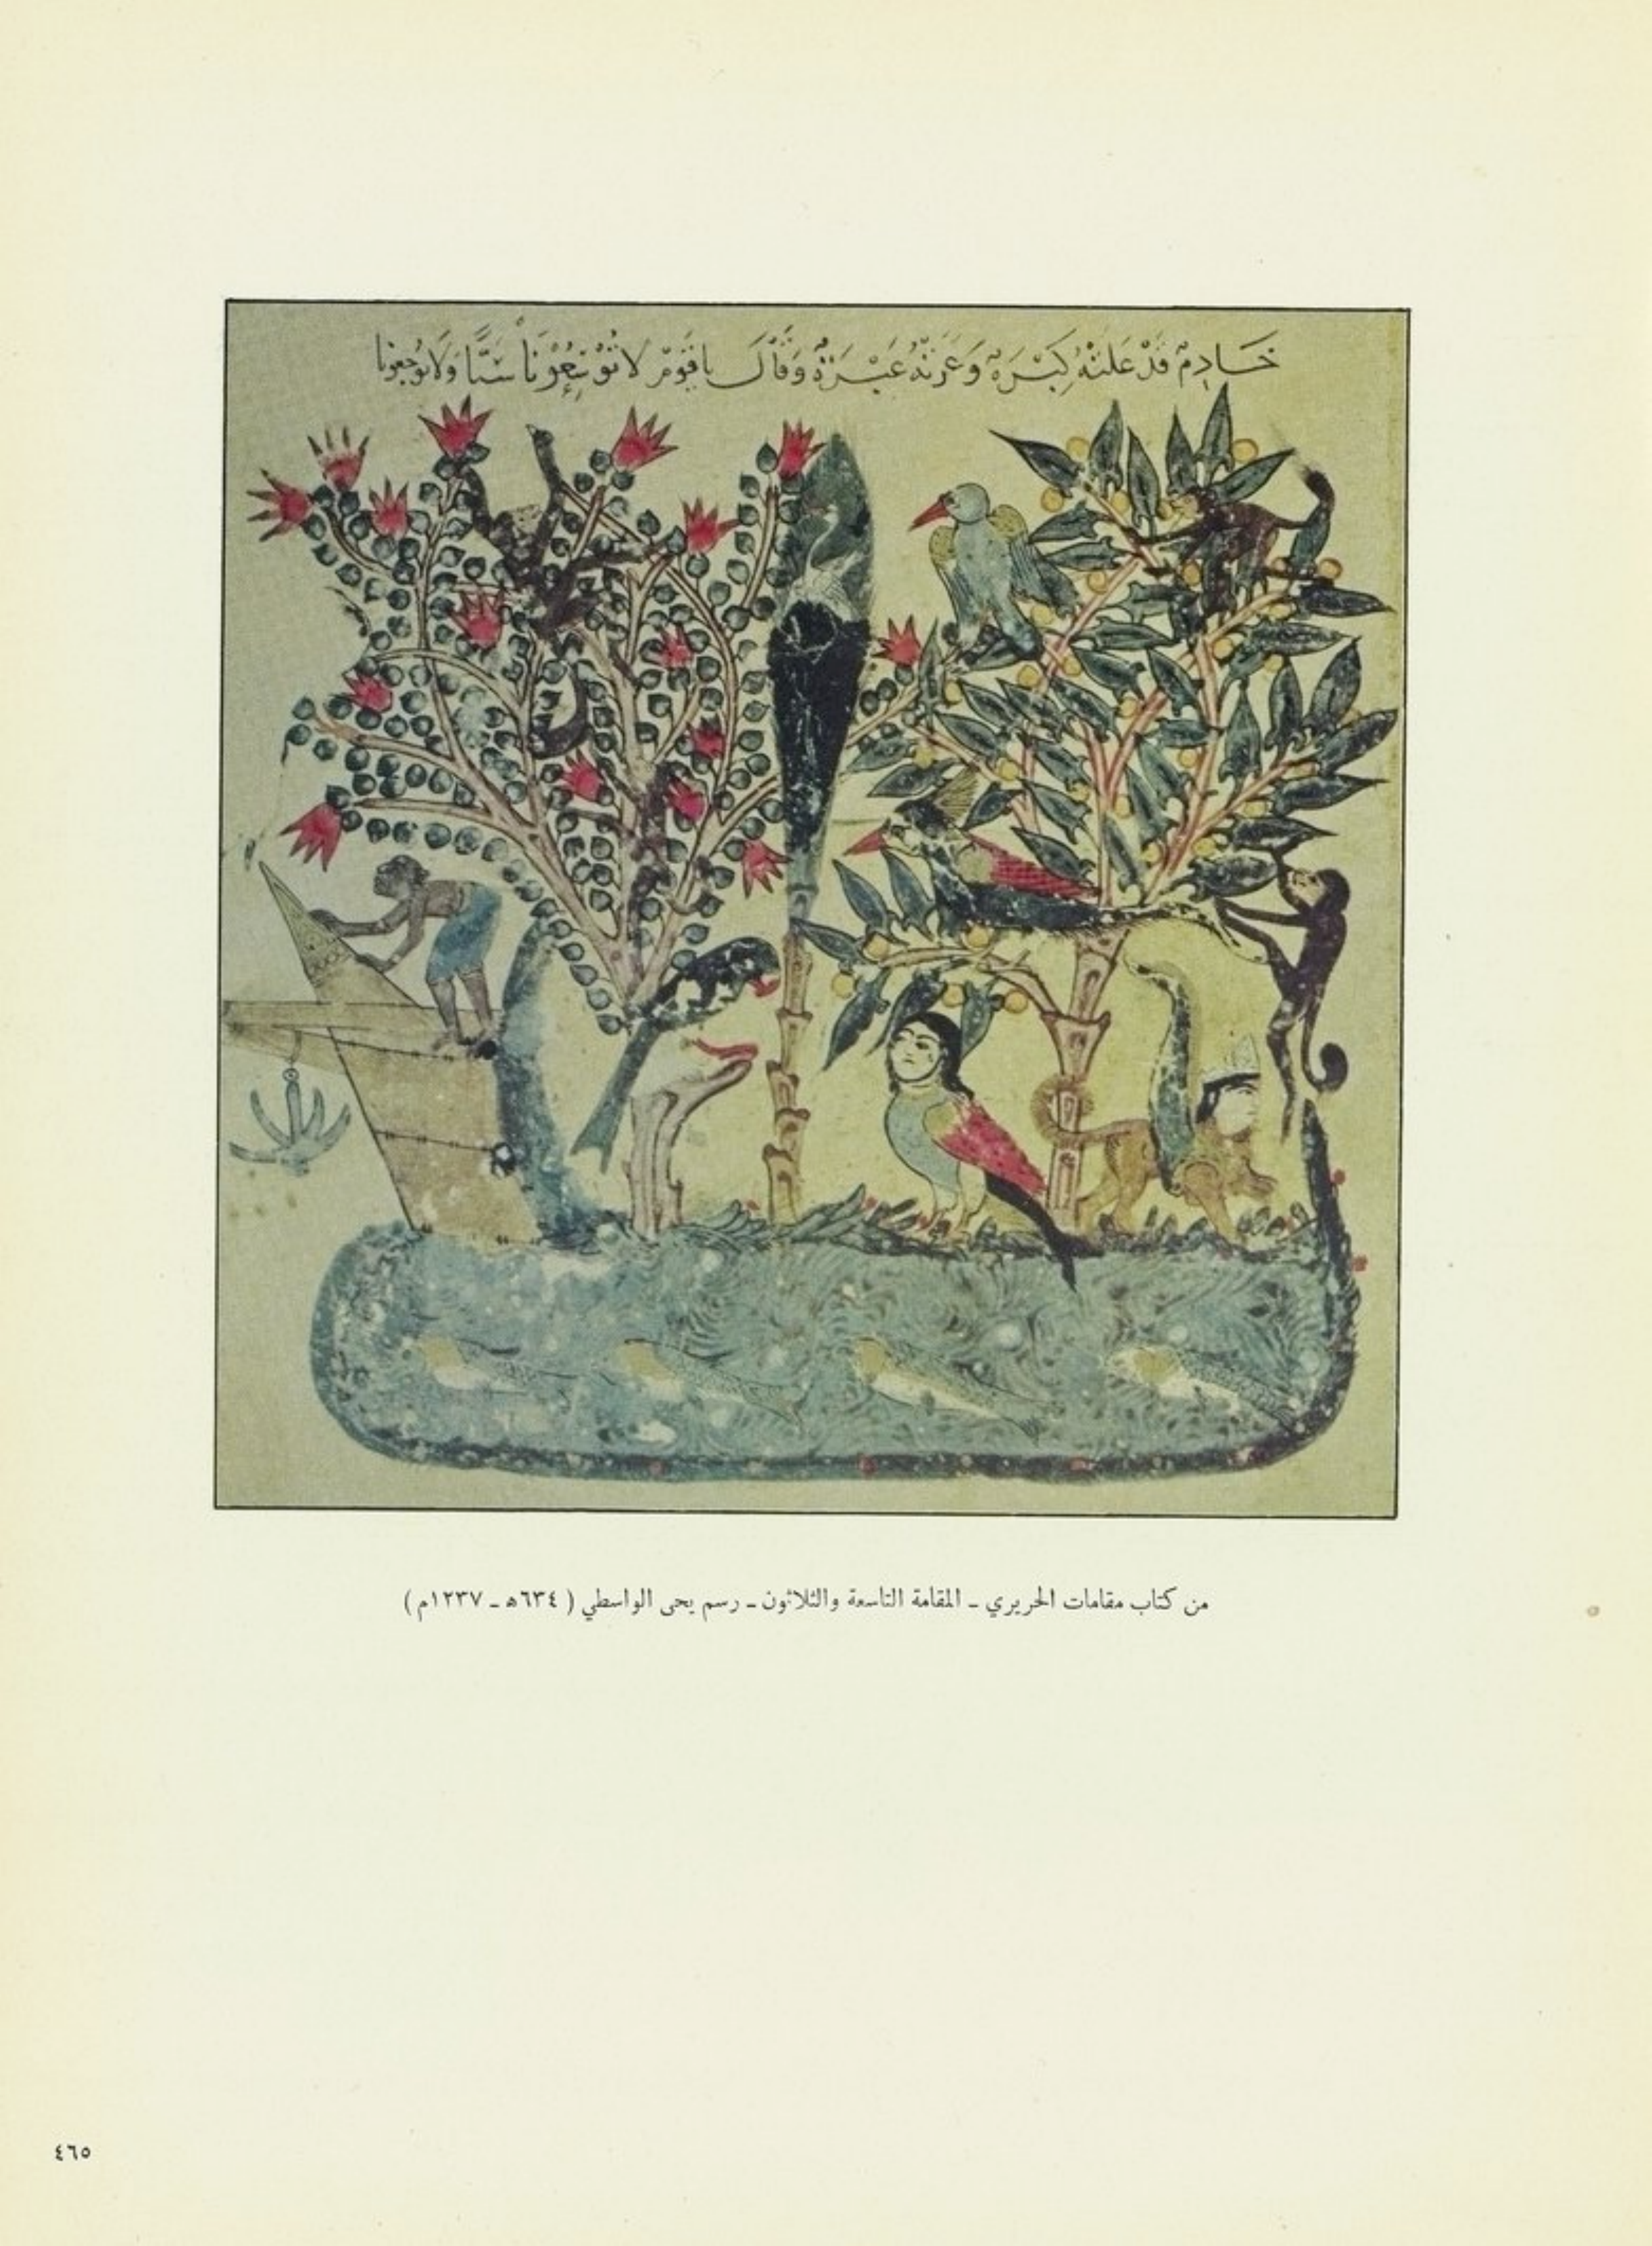 خَادِمٌ قَدْ عَلَتْهُ كَبْرَةٌ وَعَرَتْهُ عَبْرَةٌ وَقَالَ يَا قَوْمِ لَا تُوْسِعُوْنَا سَبًّا وَلَا تُوْجِعُونَا
من كتاب مقامات الحريري ـ المقامة التاسعة والثلاثون ـ رسم يحى الواسطي ( ٦٣٤ه ـ ١٢٣٧م )
٤٦٥